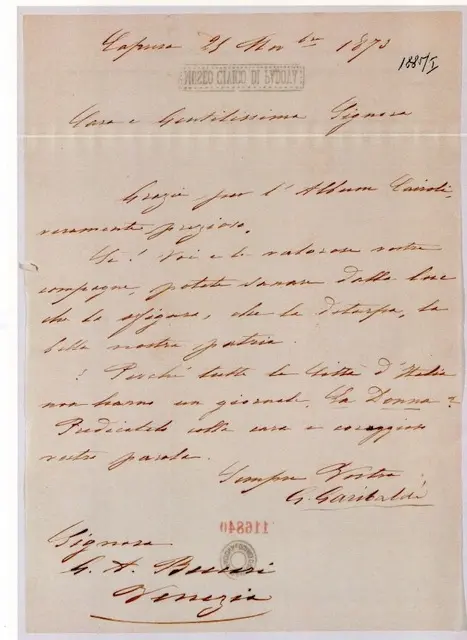 Caprera 25 Nov bre 1873
1885/I
MUSEO CIVICO DI PADOVA
Cara e Gentilissima Signora
Grazie per l'Album Cairoli
veramente prezioso.
Sì! Voi e le valorose vostre
compagne, potete sanare dalla lue
che lo sfigura, che la deturpa, la
bella nostra patria.
! Perché tutte le Città d'Italia
non hanno un giornale, La Donna?
Predicatelo colla cara e coraggiosa
vostra parola.
Sempre Vostro
G. Garibaldi
116840
Signora
G. A. Beccari
Venezia